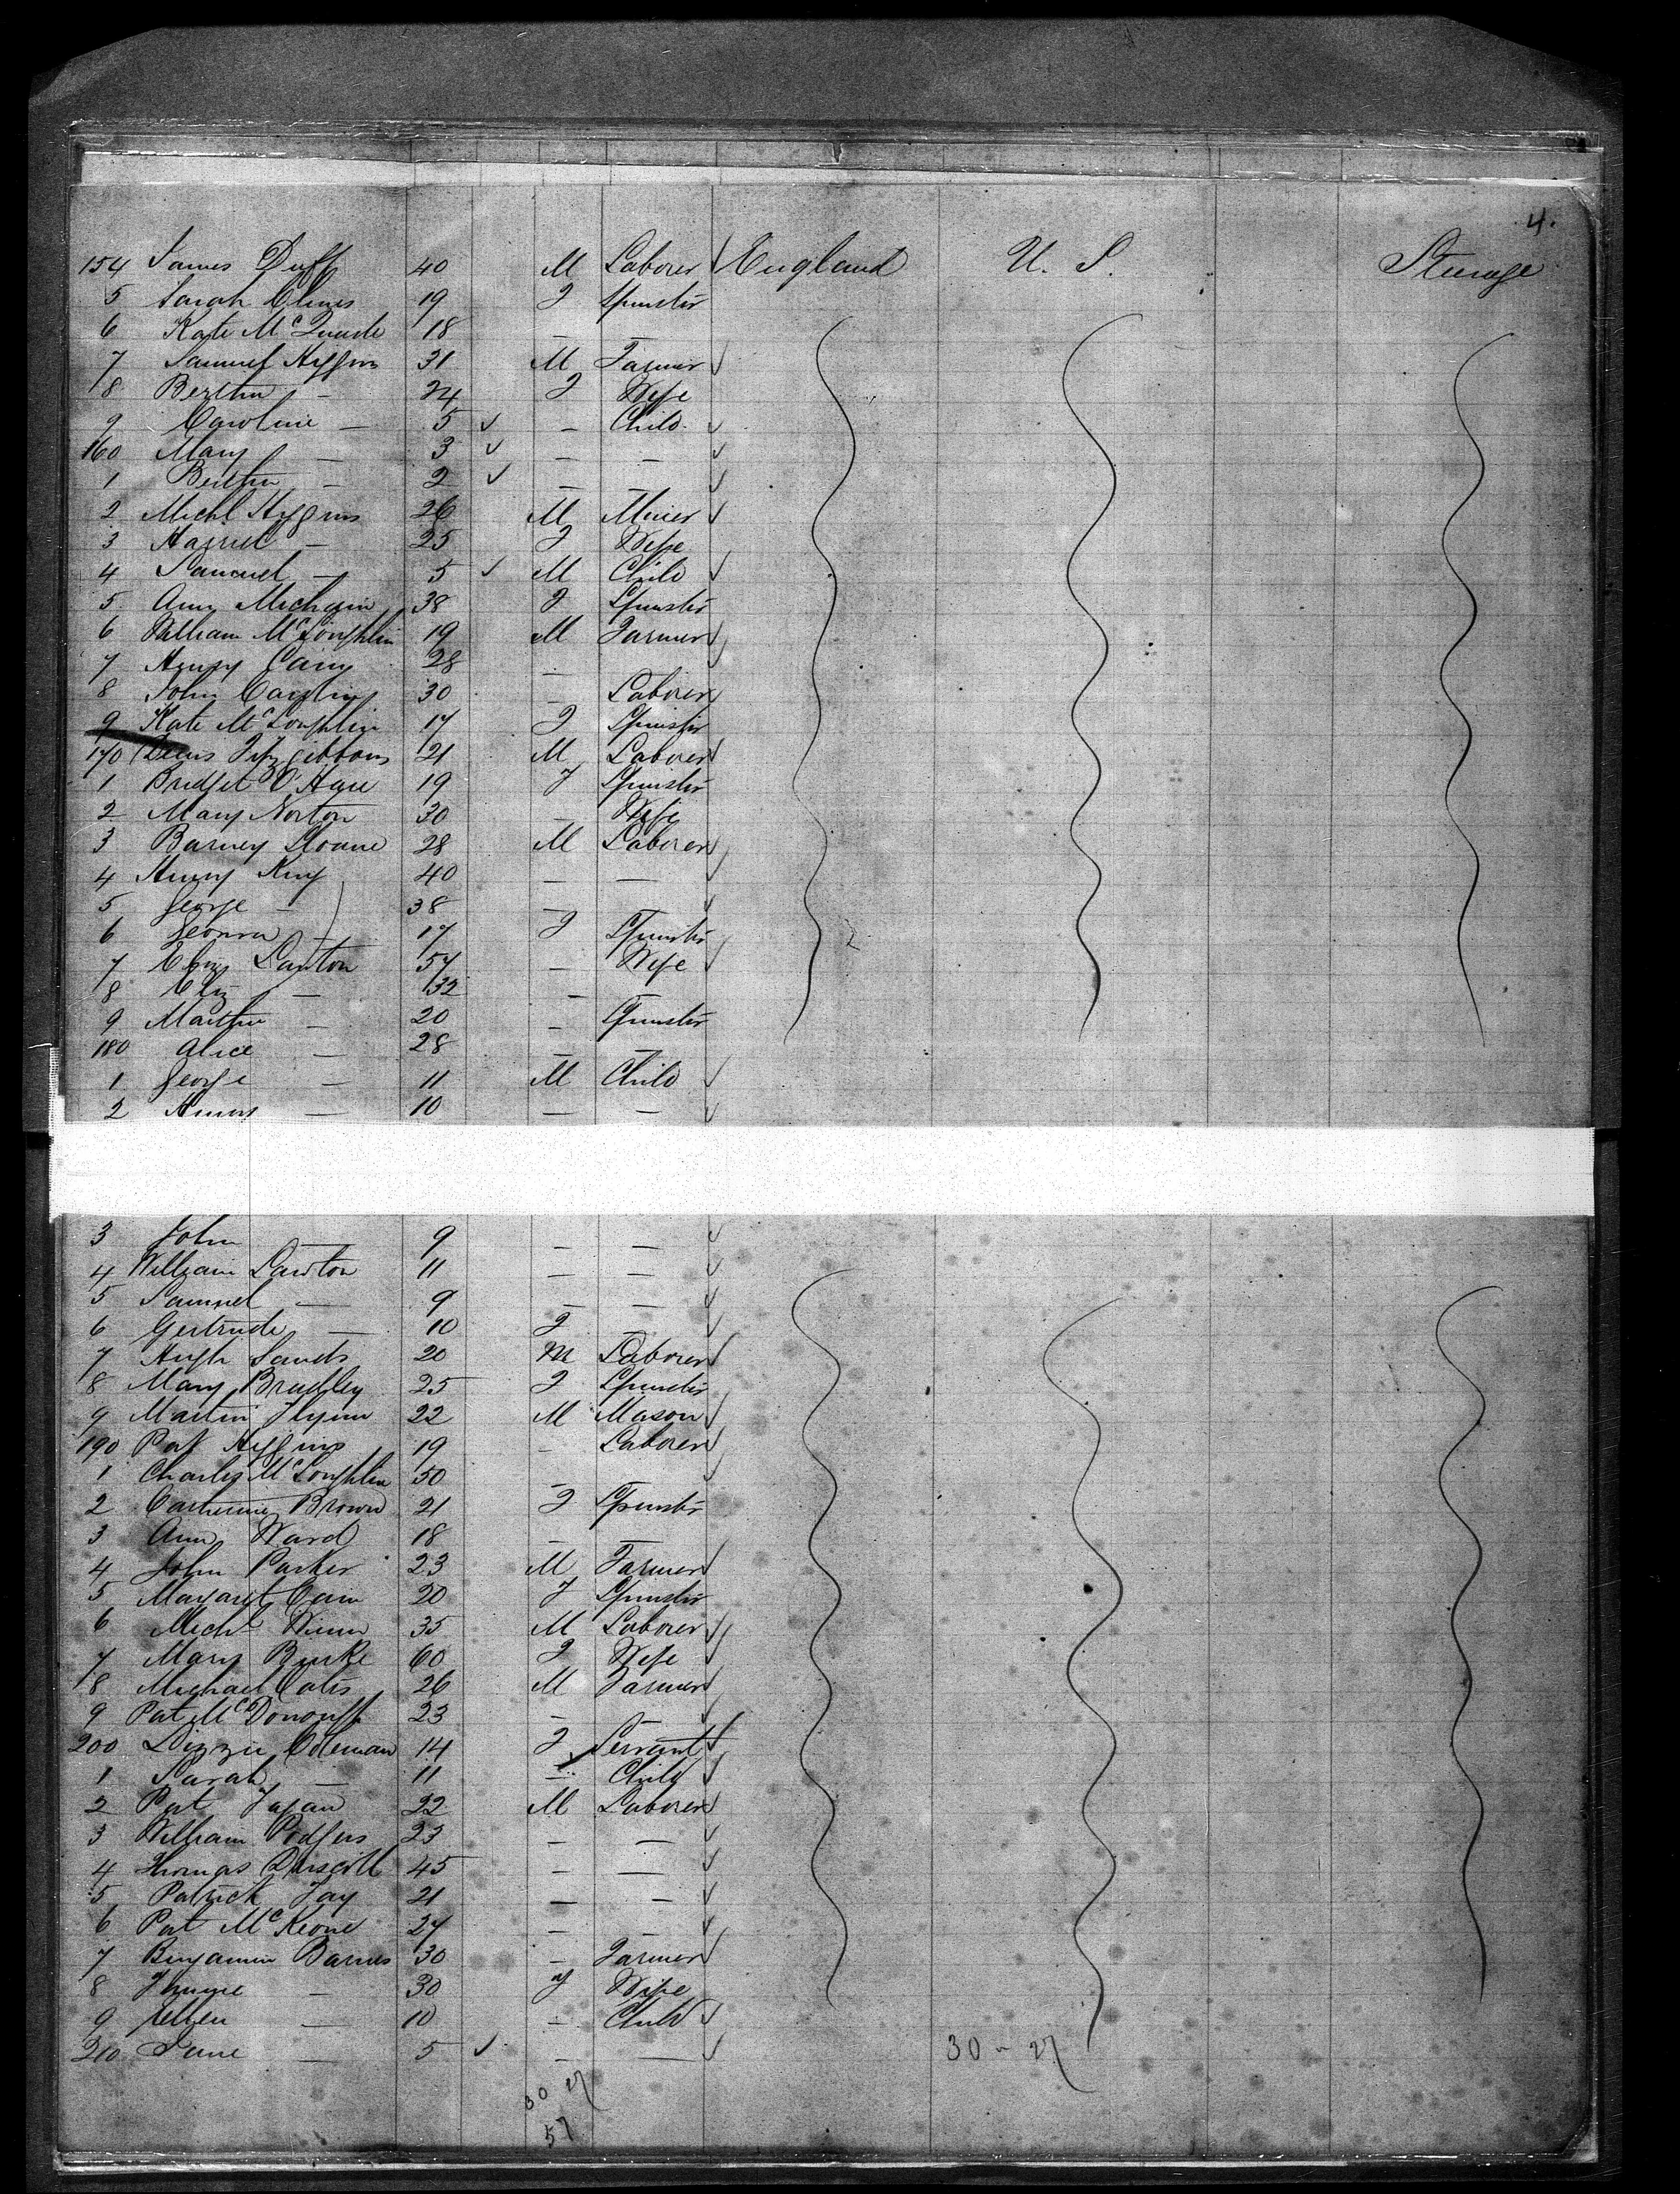 4.
154 James Duff 40 M Laborer England U. S. Steerage
5 Sarah 19 F Spinster
6 Kate McQuade 18 — —
7 Samuel Higgins 31 M Farmer
8 Bertha — 24 F Wife
9 Caroline — 5 — Child
160 Mary — 3 — —
1 Bertha — 2 — —
2 Michl Higgins 26 M Miner
3 Harriet — 25 F Wife
4 Samuel — 5 M Child
5 Ann 38 F Spinster
6 William McLoughlin 19 M Farmer
7 Henry 28 —
8 John 30 — Laborer
9 Kate McLoughlin 17 F Spinster
170 Fitzgibbons 21 M Laborer
1 Bridget O'Hare 19 F Spinster
2 Mary Norton 30 — Wife
3 Barney Sloane 28 M Laborer
4 Henry King 40 — —
5 George — 38 —
6 — 17 F Spinster
7 Lawton 57 — Wife
8 Eliz — 32 —
9 Martha — 20 — Spinster
180 Alice — 28 — —
1 George — 11 M Child
2 — 10 — —
3 John — 9 — —
4 William Lawton 11 — —
5 Samuel — 9 — —
6 Gertrude — 10 F —
7 Hugh Sands 20 M Laborer
8 Mary Bradley 25 F Spinster
9 Martin Flynn 22 M Mason
190 Pat Higgins 19 — Laborer
1 Charles McLoughlin 50
2 Catherine Brown 21 F Spinster
3 Ann Ward 18 —
4 John Parker 23 M Farmer
5 Margaret 20 F Spinster
6 Michl 35 M Laborer
7 Mary Burke 60 F Wife
8 Michael 26 M Farmer
9 Pat McDonough 23 — —
200 Lizzie Coleman 14 F Servant
1 Sarah — 11 — Child
2 Pat Fagan 22 M Laborer
3 William Rodgers 23 — —
4 Thomas Driscoll 45 — —
5 Patrick Fay 21 — —
6 Pat McKeone 27 — —
7 Benjamin Barnes 30 — Farmer
8 — 30 F Wife
9 Ellen — 10 — Child
210 Jane — 5 — —
30 - 27
30 27
57